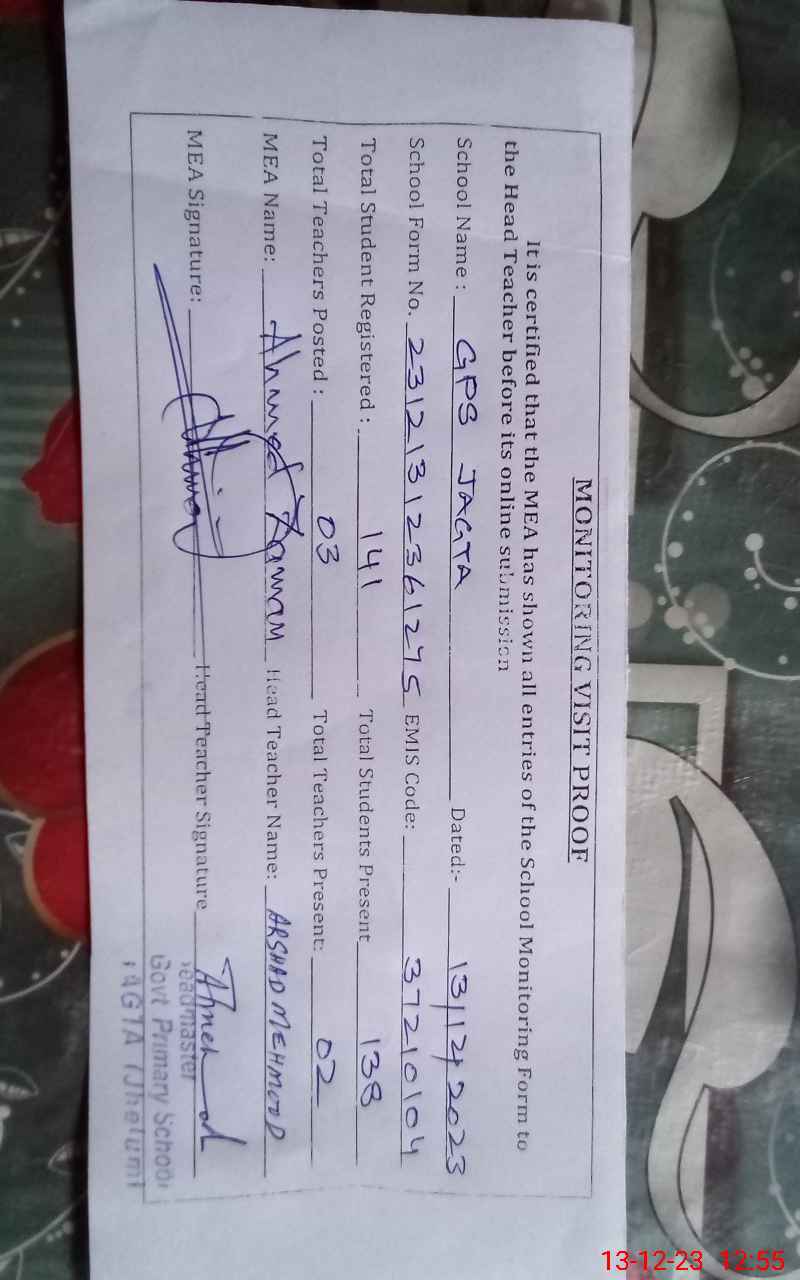 MONITORING VISIT PROOF
It is certified that the MEA has shown all entries of the School Monitoring Form to
the Head Teacher before its online submission
School Name : GPS JAGTA Dated:- 13/12/2023
School Form No. 23121312361275 EMIS Code: 37210104
Total Student Registered : 141 Total Students Present 138
Total Teachers Posted : 03 Total Teachers Present: 02
MEA Name: Ahmed Zaman Head Teacher Name: ARSHAD MEHMOOD
MEA Signature: Head Teacher Signature
Headmaster
Govt Primary School
JAGTA (Jhelum)
13-12-23 12:55